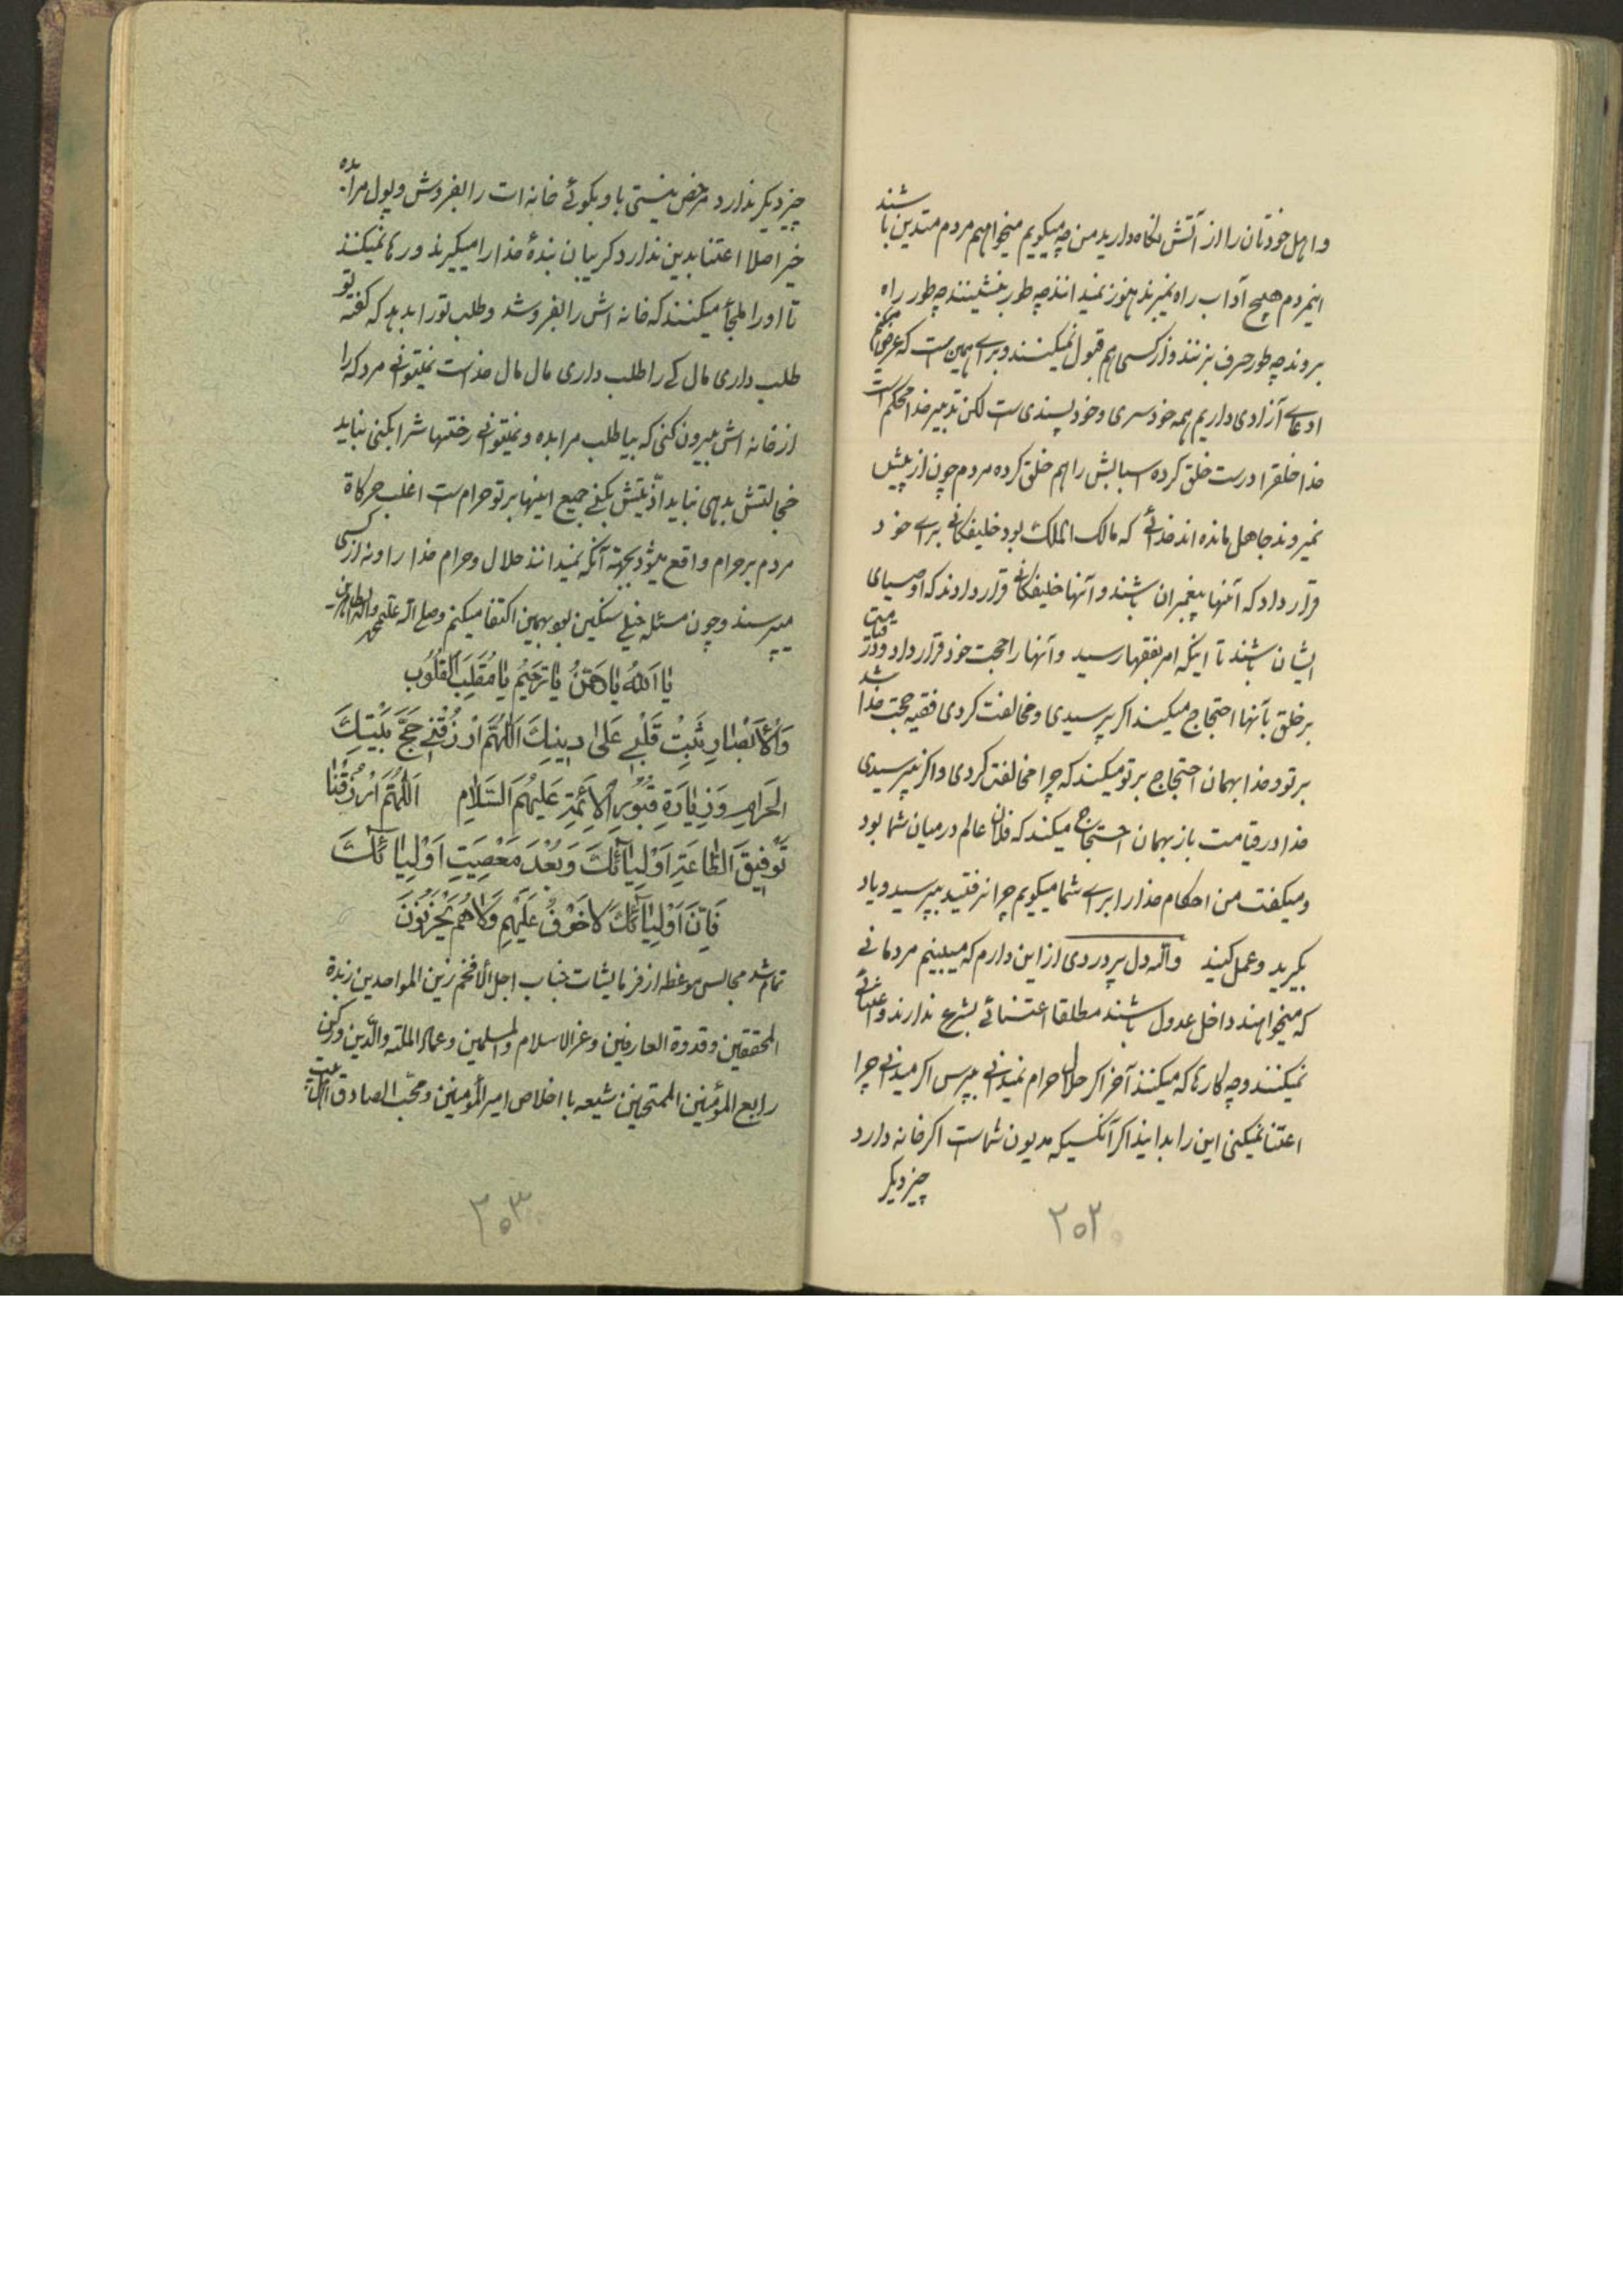 و اهل خودتان را از آتش نگاه دارید من چه میگویم میخواهم مردم متدین باشند
اینمردم هیچ آداب راه نمیبرند هنوز نمیدانند چه طور بنشینند چه طور راه
بروند چه طور حرف بزنند و از کسی هم قبول نمیکنند و براے همین ست که عرض میکنم
ادعاے آزادی داریم همه خودسری و خودپسندی ست لکن تدبیر خدا محکم است
خدا خلقرا درست خلق کرده اسبابش را هم خلق کرده مردم چون از پیش
نمیروند جاهل مانده اند خدائے که مالک الملک بود خلیفکانے براے خود
قرار داد که آنها پیغمبران باشند و آنها خلیفکانے قرار دادند که اوصیای
ایشان باشند تا اینکه امر بفقها رسید و آنها را حجت خود قرار داد و در قیامت
بر خلق بآنها احتجاج میکند اکر پرسیدی و مخالفت کردی فقیه حجت خدا شد
بر تو و خدا بهمان احتجاج بر تو میکند که چرا مخالفت کردی و اکر نپرسیدی
خدا در قیامت باز بهمان احتجاج میکند که فلان عالم در میان شما بود
و میکفت من احکام خدا را براے شما میکویم چرا نرفتید بپرسید و یاد
بکیرید و عمل کنید والله دل پر دردی از این دارم که میبینم مردمانے
که میخواهند داخل عدول باشند مطلقا اعتنائے بشرع ندارند و اعتنائے
نمیکنند و چه کارها که میکنند آخر اکر حلال حرام نمیدانے بپرس اکر میدانے چرا
اعتنا نمیکنی این را بدانید اکر آنکسیکه مدیون شماست اکر خانه دارد
چیز دیکر
۲۰۲
چیز دیکر ندارد مرخص نیستی باو بکوئے خانه ات را بفروش و پول مرا بده
خیر اصلا اعتنا بدین ندارد کریبان بندهٔ خدا را میکیرند و رها نمیکنند
تا او را ملجأ میکنند که خانه اش را بفروشد و طلب تو را بدهد که کفته تو
طلب داری مال کے را طلب داری مال مال خداست نمیتوانے مردکه را
از خانه اش بیرون کنی که بیا طلب مرا بده و نمیتوانے رختهاشرا بکنی نباید
خجالتش بدهی نباید اذیتش بکنے جمیع اینها بر تو حرام ست اغلب حرکاة
مردم بر حرام واقع میشود بجهته آنکه نمیدانند حلال و حرام خدا را و نه از کسی
میپرسند و چون مسئله خیلے سنکین بود بهمین اکتفا میکنم و صلے الله علے محمد و آله الطاهرین
یٰا اَللهُ یٰا رَحْمٰنُ یٰا رَحیٖمُ یٰا مُقَلِّبَ القُلُوبِ
وَالْأَبْصٰارِ ثَبِّتْ قَلْبٖے عَلیٰ دیٖنِكَ اَللّٰهُمَّ ارْزُقْنٖے حَجَّ بَیْتِكَ
الحَرٰامِ وَزِیٰارَةِ قُبُوْرِ الْأَئِمَّةِ عَلَیْهِمُ السَّلٰامِ اَللّٰهُمَّ ارْزُقْنٰا
تَوْفیٖقَ الطّٰاعَةِ اَوْلِیٰآئِكَ وَبُعْدَ مَعْصِیَتِ اَوْلِیٰآئِكَ
فَاِنَّ اَوْلِیٰآئِكَ لٰاخَوْفٌ عَلَیْهِمِ وَلٰاهُمْ یَحْزَنُوْنَ
تمام شد مجالس موعظه از فرمایشات جناب اجل الأفخم زین المواحدین زبدة
المحققین و قدوة العارفین و عز الاسلام والمسلمین و عماد الملته والدین و رکن
رابع المؤمنین الممتحنین شیعه با اخلاص امیر المؤمنین و محب الصادق
۲۰۳